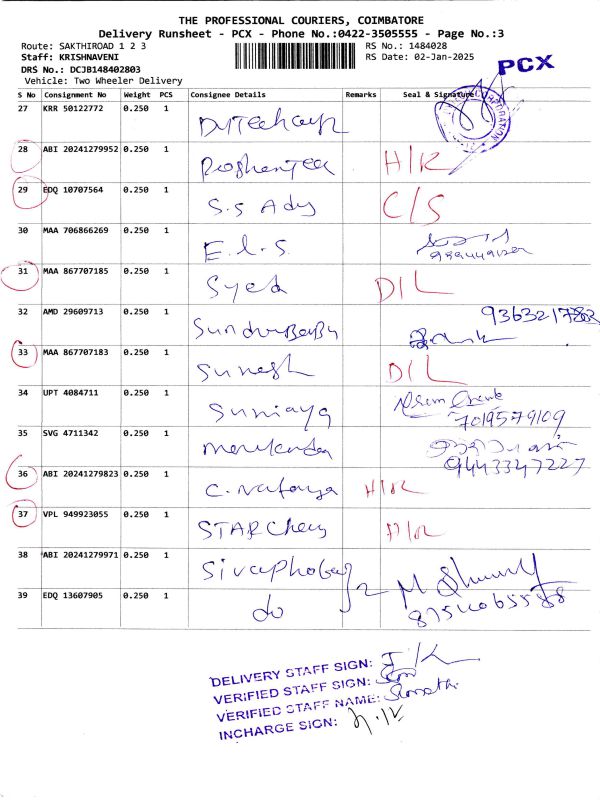 THE PROFESSIONAL COURIERS, COIMBATORE
Delivery Runsheet - PCX - Phone No.:0422-3505555 - Page No.:3
Route: SAKTHIROAD 1 2 3 RS No.: 1484028
Staff: KRISHNAVENI RS Date: 02-Jan-2025
DRS No.: DCJB148402803
Vehicle: Two Wheeler Delivery
PCX
S No Consignment No Weight PCS Consignee Details Remarks Seal & Signature
27 KRR 50122772 0.250 1
28 ABI 20241279952 0.250 1 H/K
29 EDQ 10707564 0.250 1 S.S Ads C/S
30 MAA 706866269 0.250 1 E.L.S.
31 MAA 867707185 0.250 1 Syed D/L
32 AMD 29609713 0.250 1 SundurBabu
33 MAA 867707183 0.250 1 Sunesh D/L
34 UPT 4084711 0.250 1 7019579109
35 SVG 4711342 0.250 1 9443347227
36 ABI 20241279823 0.250 1 C. H/K
37 VPL 949923055 0.250 1 STAR Chem
38 ABI 20241279971 0.250 1 2 M
39 EDQ 13607905 0.250 1 do
DELIVERY STAFF SIGN:
VERIFIED STAFF SIGN:
VERIFIED STAFF NAME:
INCHARGE SIGN: